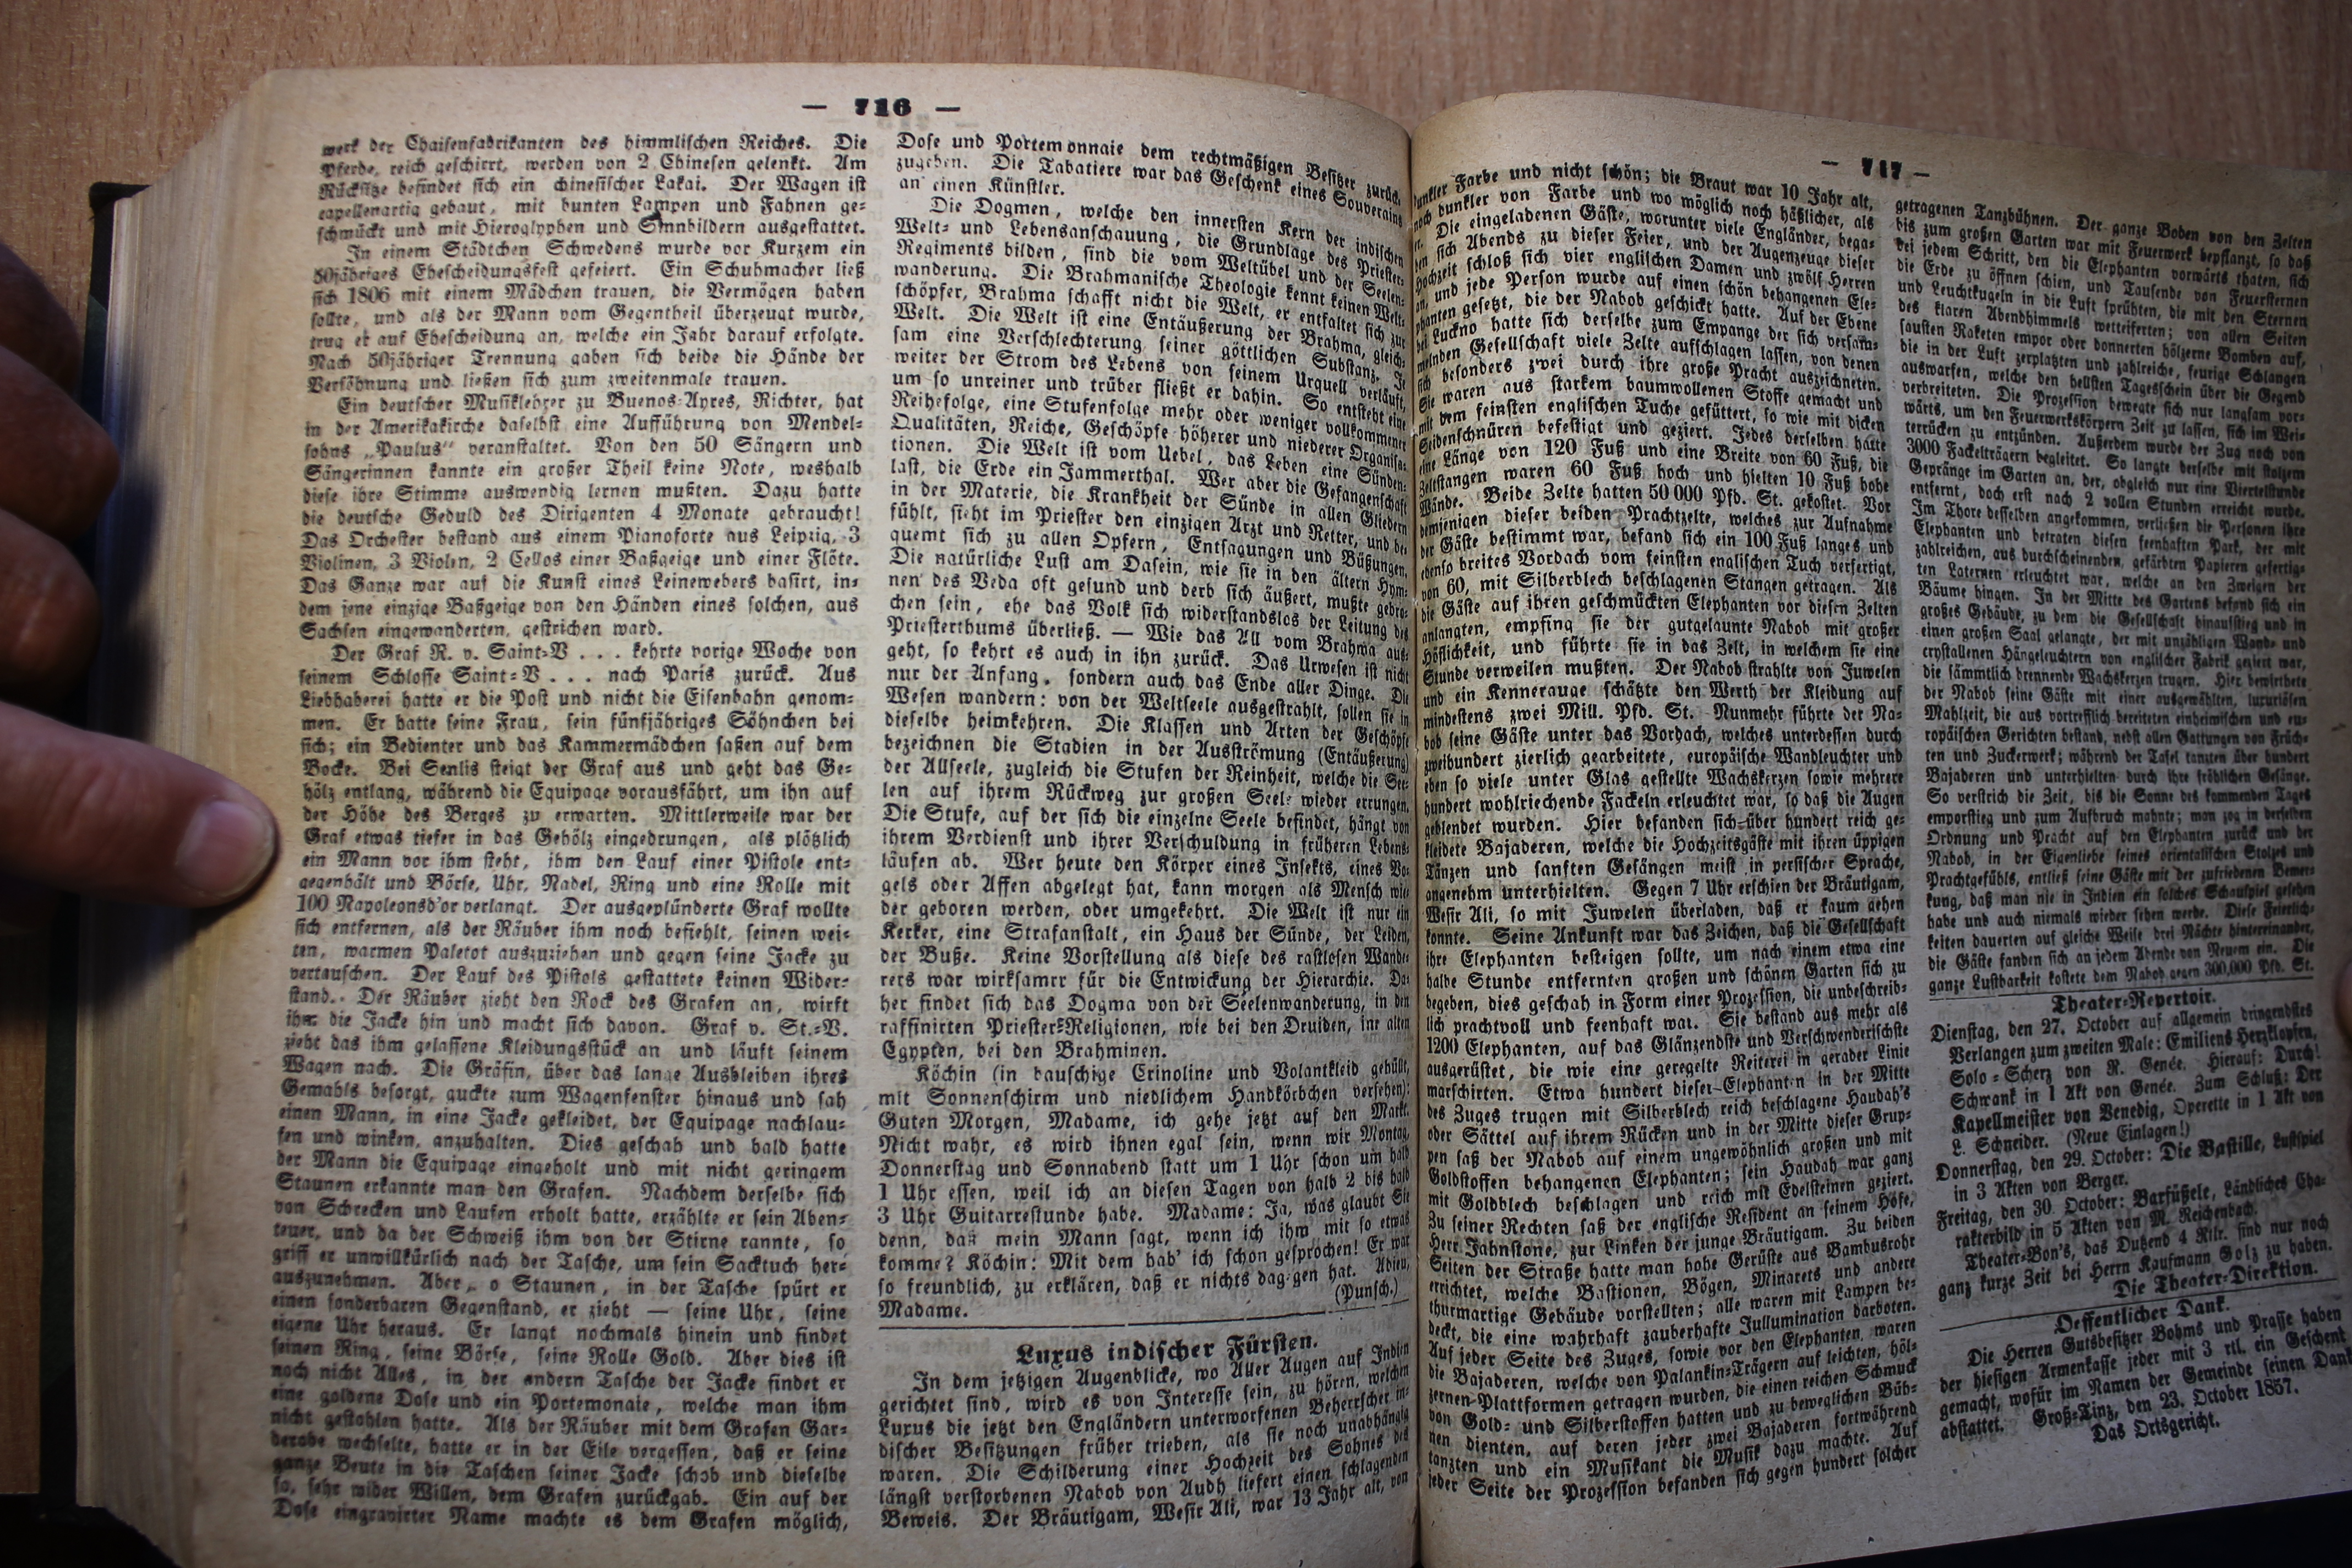 — 716 —
werk der Chaisenfabrikanten des himmlischen Reiches. Die
Pferde, reich geschirrt, werden von 2 Chinesen gelenkt. Am
Rücksitze befindet sich ein chinesischer Lakai. Der Wagen ist
capellenartig gebaut, mit bunten Lampen und Fahnen ge⸗
schmückt und mit Hieroglyphen und Sinnbildern ausgestattet.
In einem Städtchen Schwedens wurde vor Kurzem ein
50jähriges Ehescheidungsfest gefeiert. Ein Schuhmacher ließ
sich 1806 mit einem Mädchen trauen, die Vermögen haben
sollte, und als der Mann vom Gegentheil überzeugt wurde,
trug er auf Ehescheidung an, welche ein Jahr darauf erfolgte.
Nach 50jähriger Trennung gaben sich beide die Hände der
Versöhnung und ließen sich zum zweitenmale trauen.
Ein deutscher Musiklehrer zu Buenos⸗Ayres, Richter, hat
in der Amerikakirche daselbst eine Aufführung von Mendel⸗
sohns „Paulus“ veranstaltet. Von den 50 Sängern und
Sängerinnen kannte ein großer Theil keine Note, weshalb
diese ihre Stimme auswendig lernen mußten. Dazu hatte
die deutsche Geduld des Dirigenten 4 Monate gebraucht!
Das Orchester bestand aus einem Pianoforte aus Leipzig, 3
Violinen, 3 Violen, 2 Cellos einer Baßgeige und einer Flöte.
Das Ganze war auf die Kunst eines Leinewebers basirt, in⸗
dem jene einzige Baßgeige von den Händen eines solchen, aus
Sachsen eingewanderten, gestrichen ward.
Der Graf R. v. Saint⸗V . . . kehrte vorige Woche von
seinem Schlosse Saint⸗V . . . nach Paris zurück. Aus
Liebhaberei hatte er die Post und nicht die Eisenbahn genom⸗
men. Er hatte seine Frau, sein fünfjähriges Söhnchen bei
sich; ein Bedienter und das Kammermädchen saßen auf dem
Bocke. Bei Senlis steigt der Graf aus und geht das Ge⸗
hölz entlang, während die Equipage vorausfährt, um ihn auf
der Höhe des Berges zu erwarten. Mittlerweile war der
Graf etwas tiefer in das Gehölz eingedrungen, als plötzlich
ein Mann vor ihm steht, ihm den Lauf einer Pistole ent⸗
gegenhält und Börse, Uhr, Nadel, Ring und eine Rolle mit
100 Napoleonsd'or verlangt. Der ausgeplünderte Graf wollte
sich entfernen, als der Räuber ihm noch befiehlt, seinen wei⸗
ten, warmen Paletot auszuziehen und gegen seine Jacke zu
vertauschen. Der Lauf des Pistols gestattete keinen Wider⸗
stand. Der Räuber zieht den Rock des Grafen an, wirft
ihm die Jacke hin und macht sich davon. Graf v. St.⸗V.
zieht das ihm gelassene Kleidungsstück an und läuft seinem
Wagen nach. Die Gräfin, über das lange Ausbleiben ihres
Gemahls besorgt, guckte zum Wagenfenster hinaus und sah
einen Mann, in eine Jacke gekleidet, der Equipage nachlau⸗
fen und winken, anzuhalten. Dies geschah und bald hatte
der Mann die Equipage eingeholt und mit nicht geringem
Staunen erkannte man den Grafen. Nachdem derselbe sich
von Schrecken und Laufen erholt hatte, erzählte er sein Aben⸗
teuer, und da der Schweiß ihm von der Stirne rannte, so
griff er unwillkürlich nach der Tasche, um sein Sacktuch her⸗
auszunehmen. Aber, o Staunen, in der Tasche spürt er
einen sonderbaren Gegenstand, er zieht — seine Uhr, seine
eigene Uhr heraus. Er langt nochmals hinein und findet
seinen Ring, seine Börse, seine Rolle Gold. Aber dies ist
noch nicht Alles, in der andern Tasche der Jacke findet er
eine goldene Dose und ein Portemonaie, welche man ihm
nicht gestohlen hatte. Als der Räuber mit dem Grafen Gar⸗
derobe wechselte, hatte er in der Eile vergessen, daß er seine
ganze Beute in die Taschen seiner Jacke schob und dieselbe
so, sehr wider Willen, dem Grafen zurückgab. Ein auf der
Dose eingravirter Name machte es dem Grafen möglich,
Dose und Portemonnaie dem rechtmäßigen Besitzer zurück
zugeben. Die Tabatiere war das Geschenk eines Souverains
an einen Künstler.
Die Dogmen, welche den innersten Kern der indischen
Welt⸗ und Lebensanschauung, die Grundlage des Priester⸗
Regiments bilden, sind die vom Weltübel und der Seelen⸗
wanderung. Die Brahmanische Theologie kennt keinen Welt⸗
schöpfer, Brahma schafft nicht die Welt, er entfaltet sich zur
Welt. Die Welt ist eine Entäußerung der Brahma, gleich⸗
sam eine Verschlechterung seiner göttlichen Substanz. Je
weiter der Strom des Lebens von seinem Urquell verläuft,
um so unreiner und trüber fließt er dahin. So entsteht eine
Reihefolge, eine Stufenfolge mehr oder weniger vollkommener
Qualitäten, Reiche, Geschöpfe höherer und niederer Organisa⸗
tionen. Die Welt ist vom Uebel, das Leben eine Sünden⸗
last, die Erde ein Jammerthal. Wer aber die Gefangenschaft
in der Materie, die Krankheit der Sünde in allen Gliedern
fühlt, sieht im Priester den einzigen Arzt und Retter, und be⸗
quemt sich zu allen Opfern, Entsagungen und Büßungen.
Die natürliche Lust am Dasein, wie sie in den ältern Hym⸗
nen des Veda oft gesund und derb sich äußert, mußte gebro⸗
chen sein, ehe das Volk sich widerstandslos der Leitung des
Priesterthums überließ. — Wie das All vom Brahma aus⸗
geht, so kehrt es auch in ihn zurück. Das Urwesen ist nicht
nur der Anfang, sondern auch das Ende aller Dinge. Die
Wesen wandern: von der Weltseele ausgestrahlt, sollen sie in
dieselbe heimkehren. Die Klassen und Arten der Geschöpfe
bezeichnen die Stadien in der Ausströmung (Entäußerung)
der Allseele, zugleich die Stufen der Reinheit, welche die See⸗
len auf ihrem Rückweg zur großen Seele wieder errungen.
Die Stufe, auf der sich die einzelne Seele befindet, hängt von
ihrem Verdienst und ihrer Verschuldung in früheren Lebens⸗
läufen ab. Wer heute den Körper eines Insekts, eines Vo⸗
gels oder Affen abgelegt hat, kann morgen als Mensch wie⸗
der geboren werden, oder umgekehrt. Die Welt ist nur ein
Kerker, eine Strafanstalt, ein Haus der Sünde, der Leiden,
der Buße. Keine Vorstellung als diese des rastlosen Wande⸗
rers war wirksamer für die Entwickung der Hierarchie. Da⸗
her findet sich das Dogma von der Seelenwanderung, in den
raffinirten Priester⸗Religionen, wie bei den Druiden, im alten
Egypten, bei den Brahminen.
Köchin (in bauschige Crinoline und Volantkleid gehüllt,
mit Sonnenschirm und niedlichem Handkörbchen versehen):
Guten Morgen, Madame, ich gehe jetzt auf den Markt.
Nicht wahr, es wird ihnen egal sein, wenn wir Montag,
Donnerstag und Sonnabend statt um 1 Uhr schon um halb
1 Uhr essen, weil ich an diesen Tagen von halb 2 bis halb
3 Uhr Guitarrestunde habe. Madame: Ja, was glaubt Sie
denn, daß mein Mann sagt, wenn ich ihm mit so etwas
komme? Köchin: Mit dem hab' ich schon gesprochen! Er war
so freundlich, zu erklären, daß er nichts dagegen hat. Adieu,
Madame. (Punsch.)
Luxus indischer Fürsten.
In dem jetzigen Augenblicke, wo Aller Augen auf Indien
gerichtet sind, wird es von Interesse sein, zu hören, welchen
Luxus die jetzt den Engländern unterworfenen Beherrscher in⸗
discher Besitzungen früher trieben, als sie noch unabhängig
waren. Die Schilderung einer Hochzeit des Sohnes des
längst verstorbenen Nabob von Audh liefert einen schlagenden
Beweis. Der Bräutigam, Wesir Ali, war 13 Jahr alt, von
— 717 —
dunkler Farbe und nicht schön; die Braut war 10 Jahr alt,
noch dunkler von Farbe und wo möglich noch häßlicher, als
er. Die eingeladenen Gäste, worunter viele Engländer, bega⸗
ben sich Abends zu dieser Feier, und der Augenzeuge dieser
Hochzeit schloß sich vier englischen Damen und zwölf Herren
an, und jede Person wurde auf einen schön behangenen Ele⸗
phanten gesetzt, die der Nabob geschickt hatte. Auf der Ebene
bei Luckno hatte sich derselbe zum Empange der sich versam⸗
melnden Gesellschaft viele Zelte aufschlagen lassen, von denen
sich besonders zwei durch ihre große Pracht auszeichneten.
Sie waren aus starkem baumwollenen Stoffe gemacht und
mit dem feinsten englischen Tuche gefüttert, so wie mit dicken
Seidenschnüren befestigt und geziert. Jedes derselben hatte
eine Länge von 120 Fuß und eine Breite von 60 Fuß, die
Zeltstangen waren 60 Fuß hoch und hielten 10 Fuß hohe
Wände. Beide Zelte hatten 50 000 Pfd. St. gekostet. Vor
demjenigen dieser beiden Prachtzelte, welches zur Aufnahme
der Gäste bestimmt war, befand sich ein 100 Fuß langes und
ebenso breites Vordach vom feinsten englischen Tuch verfertigt,
von 60, mit Silberblech beschlagenen Stangen getragen. Als
die Gäste auf ihren geschmückten Elephanten vor diesen Zelten
anlangten, empfing sie der gutgelaunte Nabob mit großer
Höflichkeit, und führte sie in das Zelt, in welchem sie eine
Stunde verweilen mußten. Der Nabob strahlte von Juwelen
und ein Kennerauge schätzte den Werth der Kleidung auf
mindestens zwei Mill. Pfd. St. Nunmehr führte der Na⸗
bob seine Gäste unter das Vordach, welches unterdessen durch
zweihundert zierlich gearbeitete, europäische Wandleuchter und
eben so viele unter Glas gestellte Wachskerzen sowie mehrere
hundert wohlriechende Fackeln erleuchtet war, so daß die Augen
geblendet wurden. Hier befanden sich über hundert reich ge⸗
kleidete Bajaderen, welche die Hochzeitsgäste mit ihren üppigen
Tänzen und sanften Gesängen meist in persischer Sprache,
angenehm unterhielten. Gegen 7 Uhr erschien der Bräutigam,
Wesir Ali, so mit Juwelen überladen, daß er kaum gehen
konnte. Seine Ankunft war das Zeichen, daß die Gesellschaft
ihre Elephanten besteigen sollte, um nach einem etwa eine
halbe Stunde entfernten großen und schönen Garten sich zu
begeben, dies geschah in Form einer Prozession, die unbeschreib⸗
lich prachtvoll und feenhaft war. Sie bestand aus mehr als
1200 Elephanten, auf das Glänzendste und Verschwenderischste
ausgerüstet, die wie eine geregelte Reiterei in gerader Linie
marschirten. Etwa hundert dieser Elephanten in der Mitte
des Zuges trugen mit Silberblech reich beschlagene Haudah's
oder Sättel auf ihrem Rücken und in der Mitte dieser Grup⸗
pen saß der Nabob auf einem ungewöhnlich großen und mit
Goldstoffen behangenen Elephanten; sein Haudah war ganz
mit Goldblech beschlagen und reich mit Edelsteinen geziert.
Zu seiner Rechten saß der englische Resident an seinem Hofe,
Herr Jahnstone, zur Linken der junge Bräutigam. Zu beiden
Seiten der Straße hatte man hohe Gerüste aus Bambusrohr
errichtet, welche Bastionen, Bögen, Minarets und andere
thurmartige Gebäude vorstellten; alle waren mit Lampen be⸗
deckt, die eine wahrhaft zauberhafte Jullumination darboten.
Auf jeder Seite des Zuges, sowie vor den Elephanten, waren
die Bajaderen, welche von Palankin⸗Trägern auf leichten, höl⸗
zernen Plattformen getragen wurden, die einen reichen Schmuck
von Gold⸗ und Silberstoffen hatten und zu beweglichen Büh⸗
nen dienten, auf deren jeder zwei Bajaderen fortwährend
tanzten und ein Musikant die Musik dazu machte. Auf
jeder Seite der Prozession befanden sich gegen hundert solcher
getragenen Tanzbühnen. Der ganze Boden von den Zelten
bis zum großen Garten war mit Feuerwerk bepflanzt, so daß
bei jedem Schritt, den die Elephanten vorwärts thaten, sich
die Erde zu öffnen schien, und Tausende von Feuersternen
und Leuchtkugeln in die Luft sprühten, die mit den Sternen
des klaren Abendhimmels wetteiferten; von allen Seiten
sausten Raketen empor oder donnerten hölzerne Bomben auf,
die in der Luft zerplatzten und zahlreiche, feurige Schlangen
auswarfen, welche den hellsten Tagesschein über die Gegend
verbreiteten. Die Prozession bewegte sich nur langsam vor⸗
wärts, um den Feuerwerkskörpern Zeit zu lassen, sich im Wei⸗
terrücken zu entzünden. Außerdem wurde der Zug noch von
3000 Fackelträgern begleitet. So langte derselbe mit stolzem
Gepränge im Garten an, der, obgleich nur eine Viertelstunde
entfernt, doch erst nach 2 vollen Stunden erreicht wurde.
Im Thore desselben angekommen, verließen die Personen ihre
Elephanten und betraten diesen feenhaften Park, der mit
zahlreichen, aus durchscheinenden, gefärbten Papieren gefertig⸗
ten Laternen erleuchtet war, welche an den Zweigen der
Bäume hingen. In der Mitte des Gartens befand sich ein
großes Gebäude, zu dem die Gesellschaft hinaufstieg und in
einen großen Saal gelangte, der mit unzähligen Wand⸗ und
crystallenen Hängeleuchtern von englischer Fabrik geziert war,
die sämmtlich brennende Wachskerzen trugen. Hier bewirthete
der Nabob seine Gäste mit einer ausgewählten, luxuriösen
Mahlzeit, die aus vortrefflich bereiteten einheimischen und eu⸗
ropäischen Gerichten bestand, nebst allen Gattungen von Früch⸗
ten und Zuckerwerk; während der Tafel tanzten über hundert
Bajaderen und unterhielten durch ihre fröhlichen Gesänge.
So verstrich die Zeit, bis die Sonne des kommenden Tages
emporstieg und zum Aufbruch mahnte; man zog in derselben
Ordnung und Pracht auf den Elephanten zurück und der
Nabob, in der Eigenliebe seines orientalischen Stolzes und
Prachtgefühls, entließ seine Gäste mit der zufriedenen Bemer⸗
kung, daß man nie in Indien ein solches Schauspiel gesehen
habe und auch niemals wieder sehen werde. Diese Feierlich⸗
keiten dauerten auf gleiche Weise drei Nächte hintereinander,
die Gäste fanden sich an jedem Abende von Neuem ein. Die
ganze Lustbarkeit kostete dem Nabob gegen 300,000 Pfd. St.
Theater⸗Repertoir.
Dienstag, den 27. October auf allgemein dringendstes
Verlangen zum zweiten Male: Emiliens Herzklopfen,
Solo⸗Scherz von R. Genée. Hierauf: Durch!
Schwank in 1 Akt von Genée. Zum Schluß: Der
Kapellmeister von Venedig, Operette in 1 Akt von
L. Schneider. (Neue Einlagen!)
Donnerstag, den 29. October: Die Bastille, Lustspiel
in 3 Akten von Berger.
Freitag, den 30. October: Barfüßele, Ländliches Cha⸗
rakterbild in 5 Akten von M. Reichenbach.
Theater⸗Bon's, das Dutzend 4 Rtlr. sind nur noch
ganz kurze Zeit bei Herrn Kaufmann Golz zu haben.
Die Theater⸗Direktion.
Oeffentlicher Dank.
Die Herren Gutsbesitzer Bohms und Prasse haben
der hiesigen Armenkasse jeder mit 3 rtl. ein Geschenk
gemacht, wofür im Namen der Gemeinde seinen Dank
abstattet. Groß⸗Tinz, den 23. October 1857.
Das Ortsgericht.